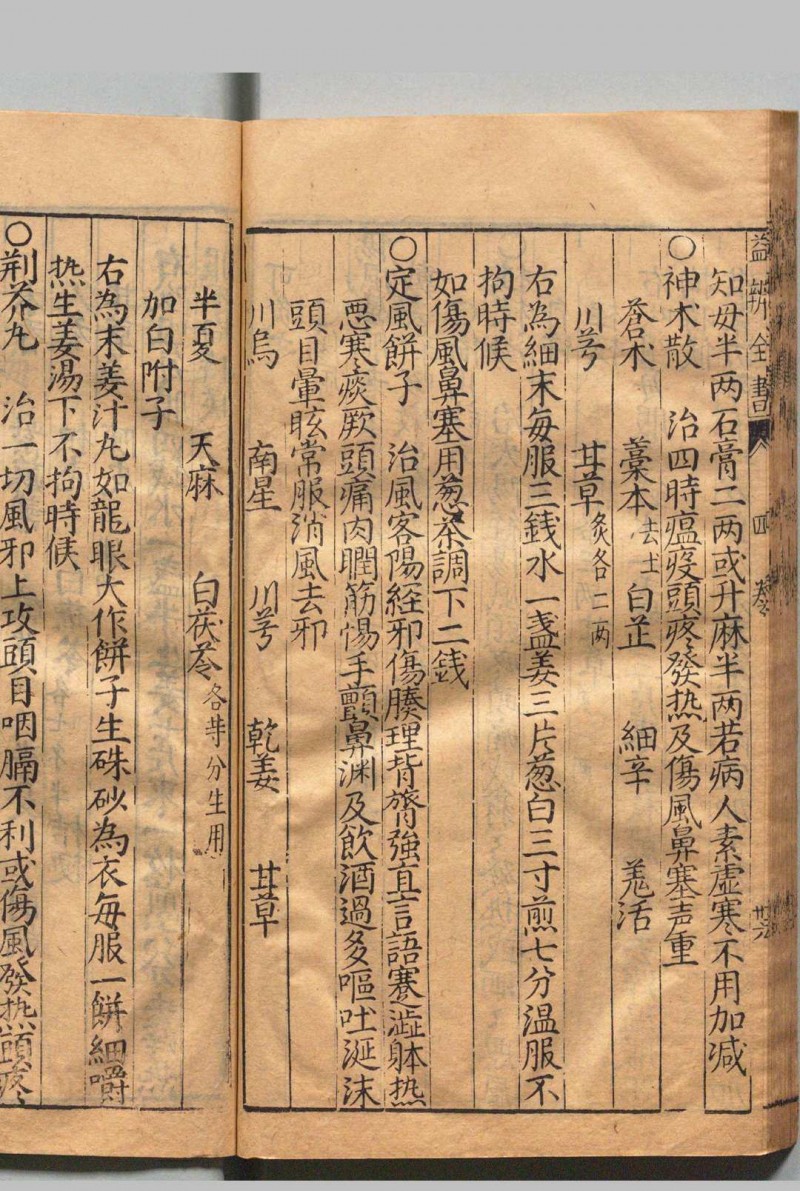 知母半两石膏二两或升麻半两若病人素虛寒不用加减
〇神术散　治四時瘟疫頭疼發热及傷風鼻塞声重
蒼术　藁本去土　白芷　細辛　羗活
川芎　甘草炙各二两
右為細末每服三錢水一盞姜三片葱白三寸煎七分温服不
拘時候
如傷風鼻塞用葱茶調下二錢
〇定風餅子　治風客陽経邪傷腠理背膂強直言語蹇澁躰热
惡寒痰厥頭痛肉瞤筋惕手顫鼻渊及飲酒過多嘔吐涎沫
頭目暈眩常服消風去邪
川烏　南星　川芎　乾姜　甘草
半夏　天麻　白茯苓各等分生用
加白附子
右為末姜汁丸如龍眼大作餅子生硃砂為衣每服一餅細嚼
热生姜湯下不拘時候
〇荆芥丸　治一切風邪上攻頭目咽膈不利或傷風發热頭疼